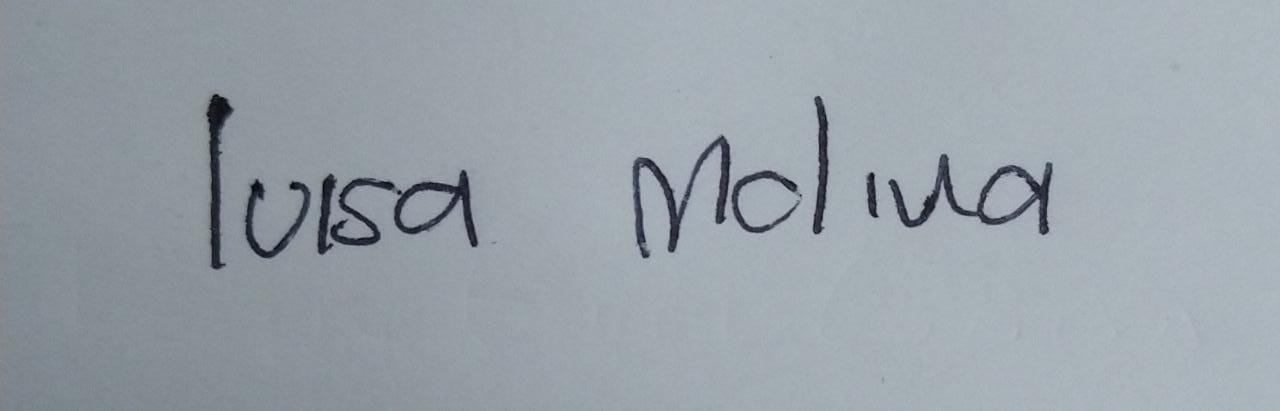 luisa Molina